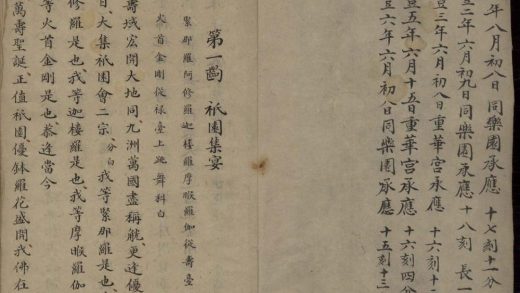 年八月初八日同樂園承應 十七刻十一分
二年六月初九日同樂園承應 十八刻 長一
三年六月初八日重華宮承應 十六刻十
五年六月十五重華宮承應 十六刻四分
六年六月初八日同樂園承應 十五刻十三
第一齣 祇園集宴
緊那羅阿修羅迦樓羅摩睺羅伽從壽臺
火首金剛從祿臺上跳舞科白
壽域宏開大地同九洲萬國盡稱觥更逢優
日大集祇園會二宗 分白 我等緊那羅是也
修羅是也我等迦樓羅是也我等摩睺羅伽
等火首金剛是也恭逢當今
萬壽聖誕正值祇園優鉢羅花盛開我佛在